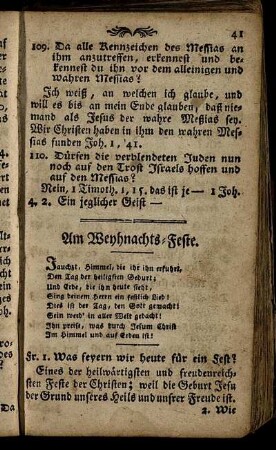 41
109. Da alle Kennzeichen des Messias an
ihm anzutreffen, erkennest und be-
kennest du ihn vor dem alleinigen und
wahren Messias?
Ich weiß, an welchen ich glaube, und
will es bis an mein Ende glauben, daß nie-
mand als Jesus der wahre Meßias sey.
Wir Christen haben in ihm den wahren Mes-
sias funden Joh. 1, 41.
110. Dürfen die verblendeten Juden nun
noch auf den Trost Israels hoffen und
auf den Messias?
Nein, 1 Timoth. 1, 15. das ist je — 1 Joh.
4. 2. Ein jeglicher Geist —
Am Weyhnachts-Feste.
Jauchzt, Himmel, die ihr ihn erfuhrt,
Den Tag der heiligsten Geburt;
Und Erde, die ihn heute sieht,
Sing deinem Herrn ein festlich Lied!
Dies ist der Tag, den Gott gemacht!
Sein werd' in aller Welt gedacht!
Ihn preise, was durch Jesum Christ
Im Himmel und auf Erden ist!
Fr. 1. Was feyern wir heute für ein Fest?
Eines der heilwärtigsten und freudenreich-
sten Feste der Christen; weil die Geburt Jesu
der Grund unseres Heils und unsrer Freude ist.
2. Wie